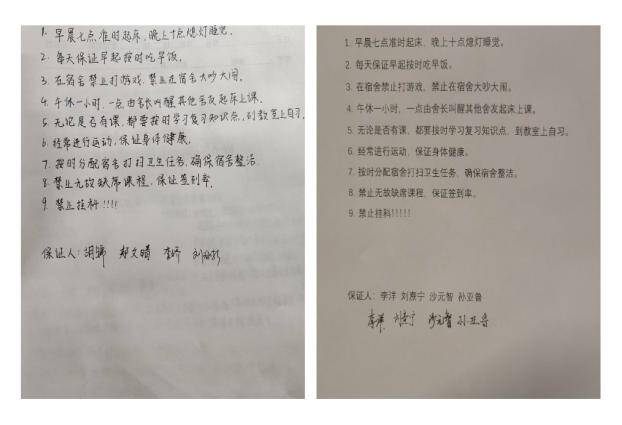 1. 早晨七点准时起床，晚上十点熄灯睡觉。
2. 每天保证早起按时吃早饭。
3. 在宿舍禁止打游戏，禁止在宿舍大吵大闹。
4. 午休一小时，一点由舍长叫醒其他舍友起床上课。
5. 无论是否有课，都要按时学习复习知识点，到教室上自习。
6. 经常进行运动，保证身体健康。
7. 按时分配宿舍打扫卫生任务，确保宿舍整洁。
8. 禁止无故缺席课程，保证签到率。
9. 禁止挂科!!!!
保证人：胡 郑文晴
1. 早晨七点准时起床，晚上十点熄灯睡觉。
2. 每天保证早起按时吃早饭。
3. 在宿舍禁止打游戏，禁止在宿舍大吵大闹。
4. 午休一小时，一点由舍长叫醒其他舍友起床上课。
5. 无论是否有课，都要按时学习复习知识点，到教室上自习。
6. 经常进行运动，保证身体健康。
7. 按时分配宿舍打扫卫生任务，确保宿舍整洁。
8. 禁止无故缺席课程，保证签到率。
9. 禁止挂科!!!!!
保证人：李洋 刘熹宁 沙元智 孙亚鲁
李洋 刘熹宁 沙元智 孙亚鲁